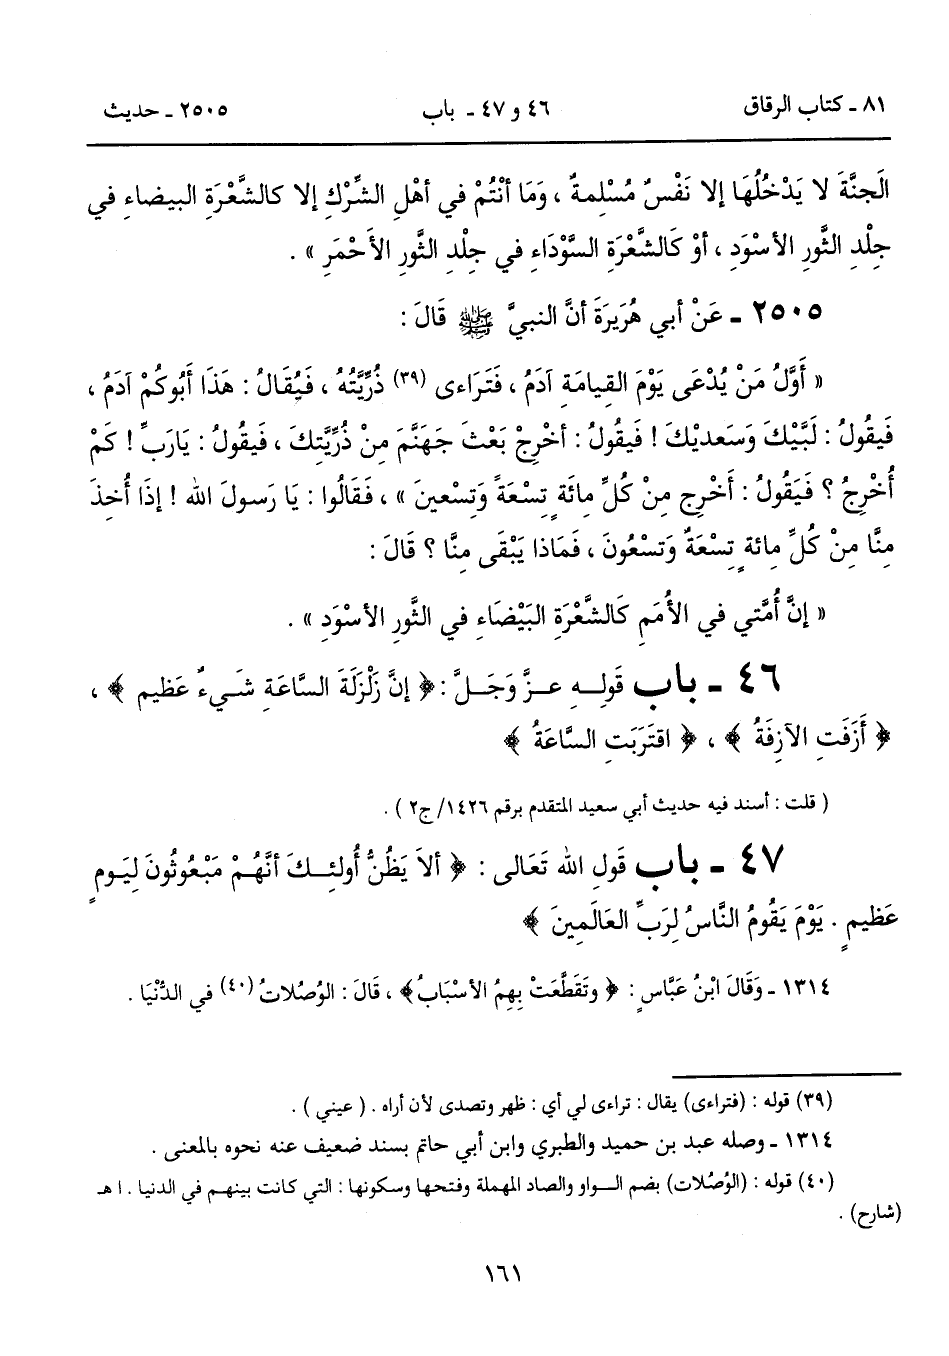 ٨١ ـ كتاب الرقاق
٤٦ و ٤٧ ـ باب
٢٥٠٥ ـ حديث
الَجنَّةَ لا يَدْخُلُهَا إلا نَفْسٌ مُسْلِمةٌ ، وَمَا أنْتُمْ في أهْلِ الشِّرْكِ إلا كالشَّعْرَةِ البيضاءِ في
جِلْدِ الثَّورِ الأسْوَدِ ، أوْ كَالشَّعْرَةِ السَّوْدَاءِ في جِلْدِ الثَّورِ الأَحْمَرِ » .
٢٥٠٥ ـ عَنْ أبي هُرَيرَةَ أنَّ النبيَّ ﷺ قَالَ :
« أَوَّلُ مَنْ يُدْعَى يَوْمَ القِيامَةِ آدَمُ ، فَتَرَاءى (٣٩) ذُرِّيَّتُهُ ، فَيُقَالُ : هَذَا أَبُوكُمْ آدَمُ ،
فَيقُولُ : لَبَّيْكَ وَسَعديْكَ ! فَيقُولُ : أخْرِجْ بَعْثَ جَهَنَّمَ مِنْ ذُرِّيَّتِكَ ، فَيقُولُ : يَارَبِّ ! كَمْ
أُخْرِجُ ؟ فَيَقُولُ : أَخْرِج مِنْ كُلِّ مائَةٍ تِسْعَةً وَتِسْعينَ » ، فَقَالُوا : يَا رَسولَ الله ! إذَا أُخِذَ
مِنَّا مِنْ كُلِّ مائة تِسْعَةٌ وَتِسْعُونَ ، فَماذَا يَبْقَى منَّا ؟ قَالَ :
« إنَّ أُمَّتي في الأُمَمِ كَالشَّعْرَةِ البَيْضَاءِ في الثَّورِ الأسْوَدِ » .
٤٦ ـ باب قَولِـهِ عـزَّ وَجَـلَّ : ﴿ إنَّ زَلْزَلَةَ السَّاعَةِ شَـيءٌ عَظيم ﴾ ،
﴿ أَزِفَتِ الآزِفَةُ ﴾ ، ﴿ اقتَرَبَتِ السَّاعَةُ ﴾
( قلت : أسند فيه حديث أبي سعيد المتقدم برقم ١٤٢٦/ ج٢ ) .
٤٧ ـ باب قَولِ الله تَعَالى : ﴿ ألاَ يَظنُّ أُولئِـكَ أنَّهُـمْ مَبْعُوثُونَ لِيَـومٍ
عَظيمٍ . يَوْمَ يَقُومُ النَّاسُ لِرَبِّ العَالَمِينَ ﴾
١٣١٤ ـ وَقَالَ ابْنُ عَبَّاسٍ : ﴿ وتَقَطَّعَتْ بِهِمُ الأسْبَابُ﴾ ، قَالَ : الوُصُلاتُ (٤٠) في الدُّنْيَا .
(٣٩) قوله : (فتراءى) يقال : تراءى لي أي : ظهر وتصدى لأن أراه . ( عيني ) .
١٣١٤ ـ وصله عبد بن حميد والطبري وابن أبي حاتم بسند ضعيف عنه نحوه بالمعنى .
(٤٠) قوله : (الوُصُلات) بضم الـواو والصاد المهملة وفتحها وسكونها : التي كانت بينهـم في الدنيا . ا هـ
(شارح) .
١٦١